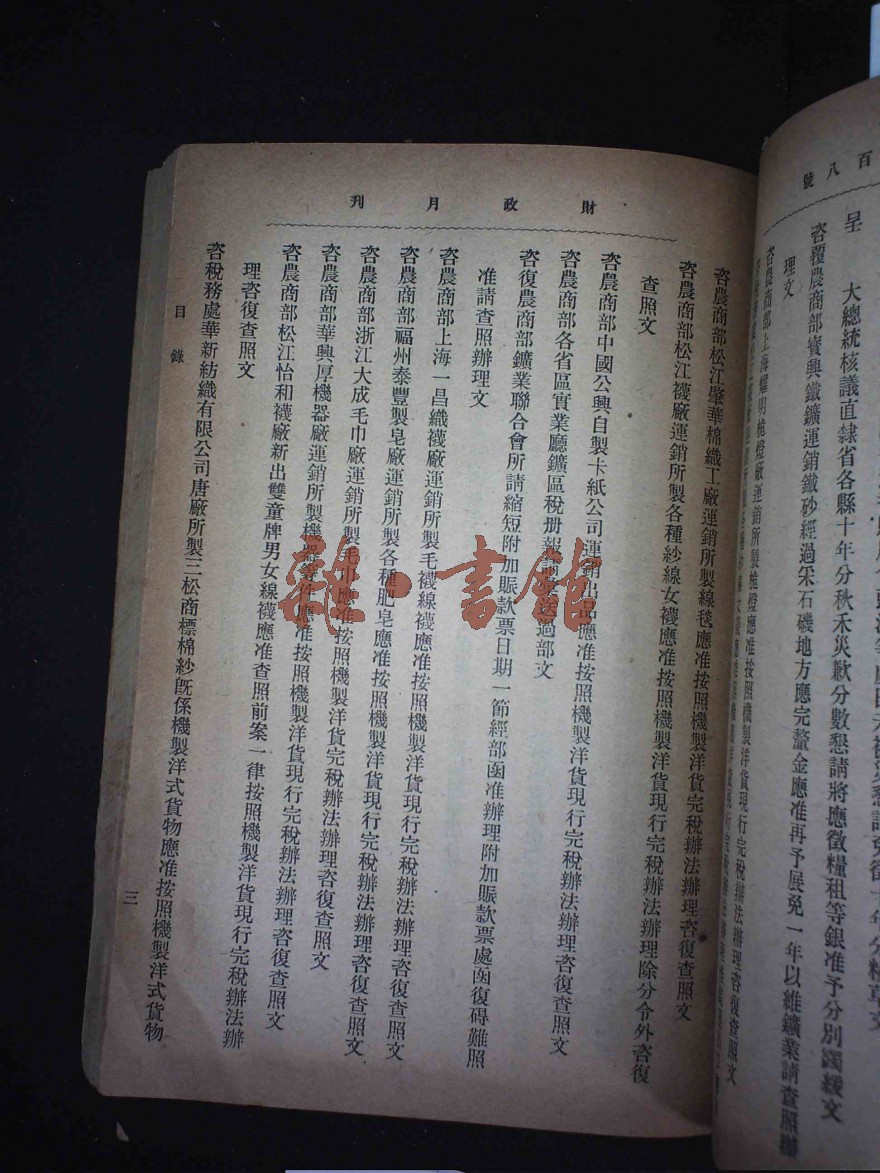 百八號
呈　大總統核議直隸省各縣十年分秋禾災歉分數懇請將應徵糧租等銀准予分別蠲緩文
咨覆農商部寶興鐵鑛運銷鐵砂經過采石磯地方應完釐金應准再予展免一年以維鑛業請查照辦
理文
咨農商部上海耀明桅燈廠運銷所製桅燈應准按照機製洋貨現行完稅辦法辦理咨復查照文
財政月刊
咨農商部松江肇華棉織工廠運銷所製線毯應准按照機製洋貨完稅辦法辦理咨復查照文
咨農商部松江襪廠運銷所製各種紗線女襪應准按照機製洋貨現行完稅辦法辦理除分令外咨復
查照文
咨農商部中國公興自製卡紙公司運銷出品應准按照機製洋貨現行完稅辦法辦理咨復查照文
咨農商部各省區實業廳鑛區稅册報請送過部文
咨復農商部鑛業聯合會所請縮短附加賑款票日期一節經部函准辦理附加賑款票處函復碍難照
准請查照辦理文
咨農商部上海一昌織襪廠運銷所製毛襪線襪應准按照機製洋貨現行完稅辦法辦理咨復查照文
咨農商部福州泰豐製皂廠運銷所製各種肥皂應准按照機製洋貨現行完稅辦法辦理咨復查照文
咨農商部浙江大成毛巾廠運銷所製毛巾應准按照機製洋貨現行完稅辦法辦理咨復查照文
咨農商部華興厚機器廠運銷所製機器等件應准按照機製洋貨現行完稅辦法辦理咨復查照文
咨農商部松江怡和襪廠新出雙童牌男女線襪應准查照前案一律按照機製洋貨現行完稅辦法辦
理咨復查照文
咨稅務處華新紡織有限公司唐廠所製三松商標棉紗既係機製洋式貨物應准按照機製洋式貨物
目錄
三
雜·書館